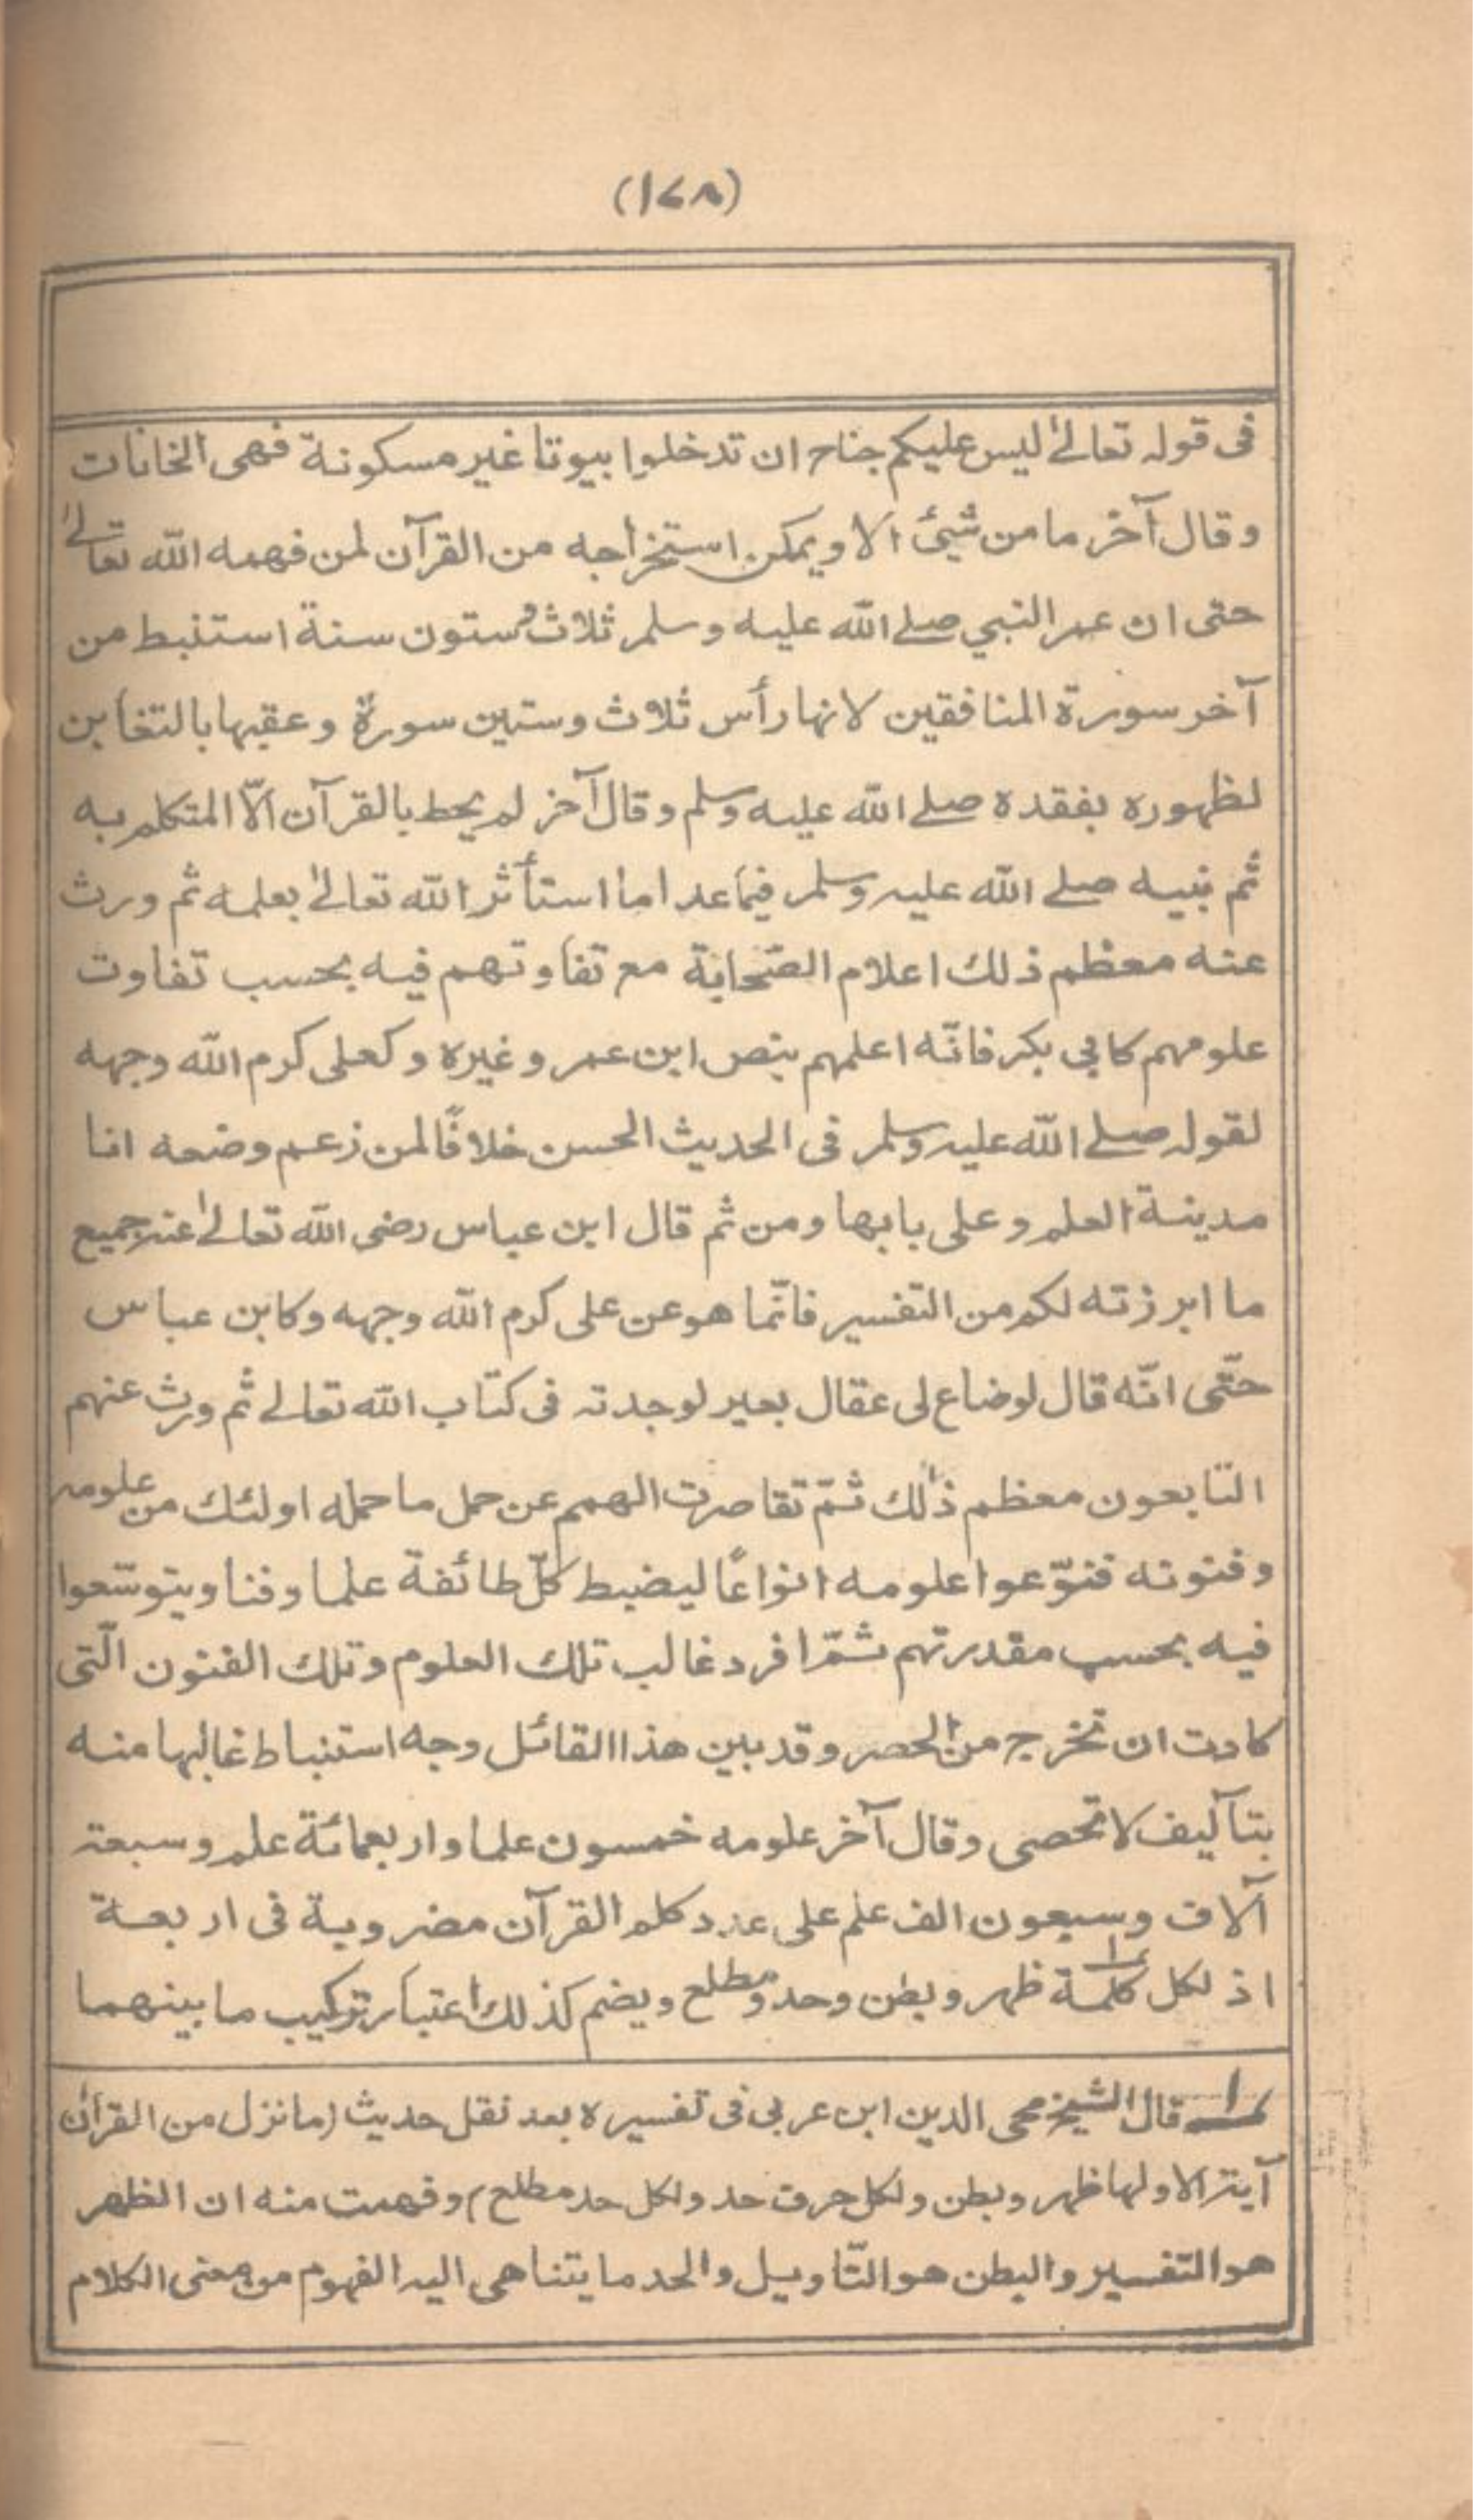 (١٧٨)
فى قوله تعالىٰ ليس عليكم جناح ان تدخلوا بيوتا غير مسكونة فهى الخانات
وقال آخر ما من شيئ الا ويمكن استخراجه من القرآن لمن فهمه الله تعالىٰ
حتى ان عمر النبي صلے الله عليه وسلم ثلاث وستون سنة استنبط من
آخر سورة المنافقين لانها رأس ثلاث وستين سورة وعقبها بالتغابن
لظهوره بفقده صلے الله عليه وسلم وقال آخر لم يحط بالقرآن الّا المتكلم به
ثم نبيه صلے الله عليه وسلم فيما عدا ما استأثر الله تعالىٰ بعلمه ثم ورث
عنه معظم ذلك اعلام الصّحابة مع تفاوتهم فيه بحسب تفاوت
علومهم كابي بكر فانّه اعلمهم بنص ابن عمر وغيره وكعلى كرم الله وجهه
لقوله صلے الله عليه وسلم فى الحديث الحسن خلافًا لمن زعم وضعه انا
مدينة العلم وعلى بابها ومن ثم قال ابن عباس رضى الله تعالىٰ عنه جميع
ما ابرزته لكم من التفسير فانّما هو عن على كرم الله وجهه وكابن عباس
حتّى انّه قال لو ضاع لى عقال بعير لوجدته فى كتاب الله تعالے ثم ورث عنهم
التابعون معظم ذٰلك ثمّ تقاصرت الهمم عن حمل ما حمله اولئك من علومه
وفنونه فنوّعوا علومه انواعًا ليضبط كلّ طائفة علما وفنا ويتوسّعوا
فيه بحسب مقدرتهم ثمّ افرد غالب تلك العلوم وتلك الفنون الّتى
كادت ان تخرج من الحصر وقد بين هذا القائل وجه استنباط غالبها منه
بتآليف لا تحصى وقال آخر علومه خمسون علما واربعمائة علم وسبعة
آلاف وسبعون الف علم على عدد كلم القرآن مضروبة فى اربعة
اذ لكل كلمة ١ ظهر وبطن وحد ومطلع ويضم كذلك اعتبار تركيب ما بينهما
١ قال الشيخ محى الدين ابن عربى فى تفسيره بعد نقل حديث (ما نزل من القرآن
آية الا ولها ظهر وبطن ولكل حرف حد ولكل حد مطلع) وفهمت منه ان الظهر
هو التفسير والبطن هو التّاويل والحد ما يتناهى اليه الفهوم من معنى الكلام